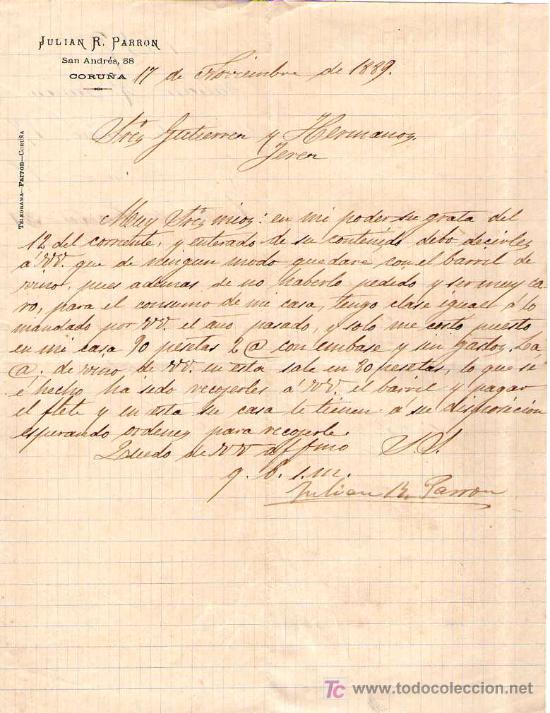 JULIAN R. PARRON
San Andrés, 88
CORUÑA
17 de Noviembre de 1889.
TELEGRAMA—PARRON—CORUÑA
Sres Gutierrez y Hermanos
Jerez
Muy Sres mios: en mi poder su grata del
12 del corriente, y enterado de su contenido debo decirles
á VV. que de ningun modo quedare con el barril de
vino, pues ademas de no haberlo pedido y ser muy ca
ro, para el consumo de mi casa, tengo clase igual á lo
mandado por VV. el año pasado, y solo me costo puesto
en mi casa 90 pesetas 2 @ con embase y sin gastos. La
@. de vino de VV. en esta sale en 80 pesetas, lo que se
é hecho ha sido recojerles á VV. el barril y pagar
el flete y en esta su casa le tienen a su disposicion
esperando ordenes para recojerle.
Quedo de VV affmo S.S.
q. b. s. m.
Julian R. Parron
TC www.todocoleccion.net